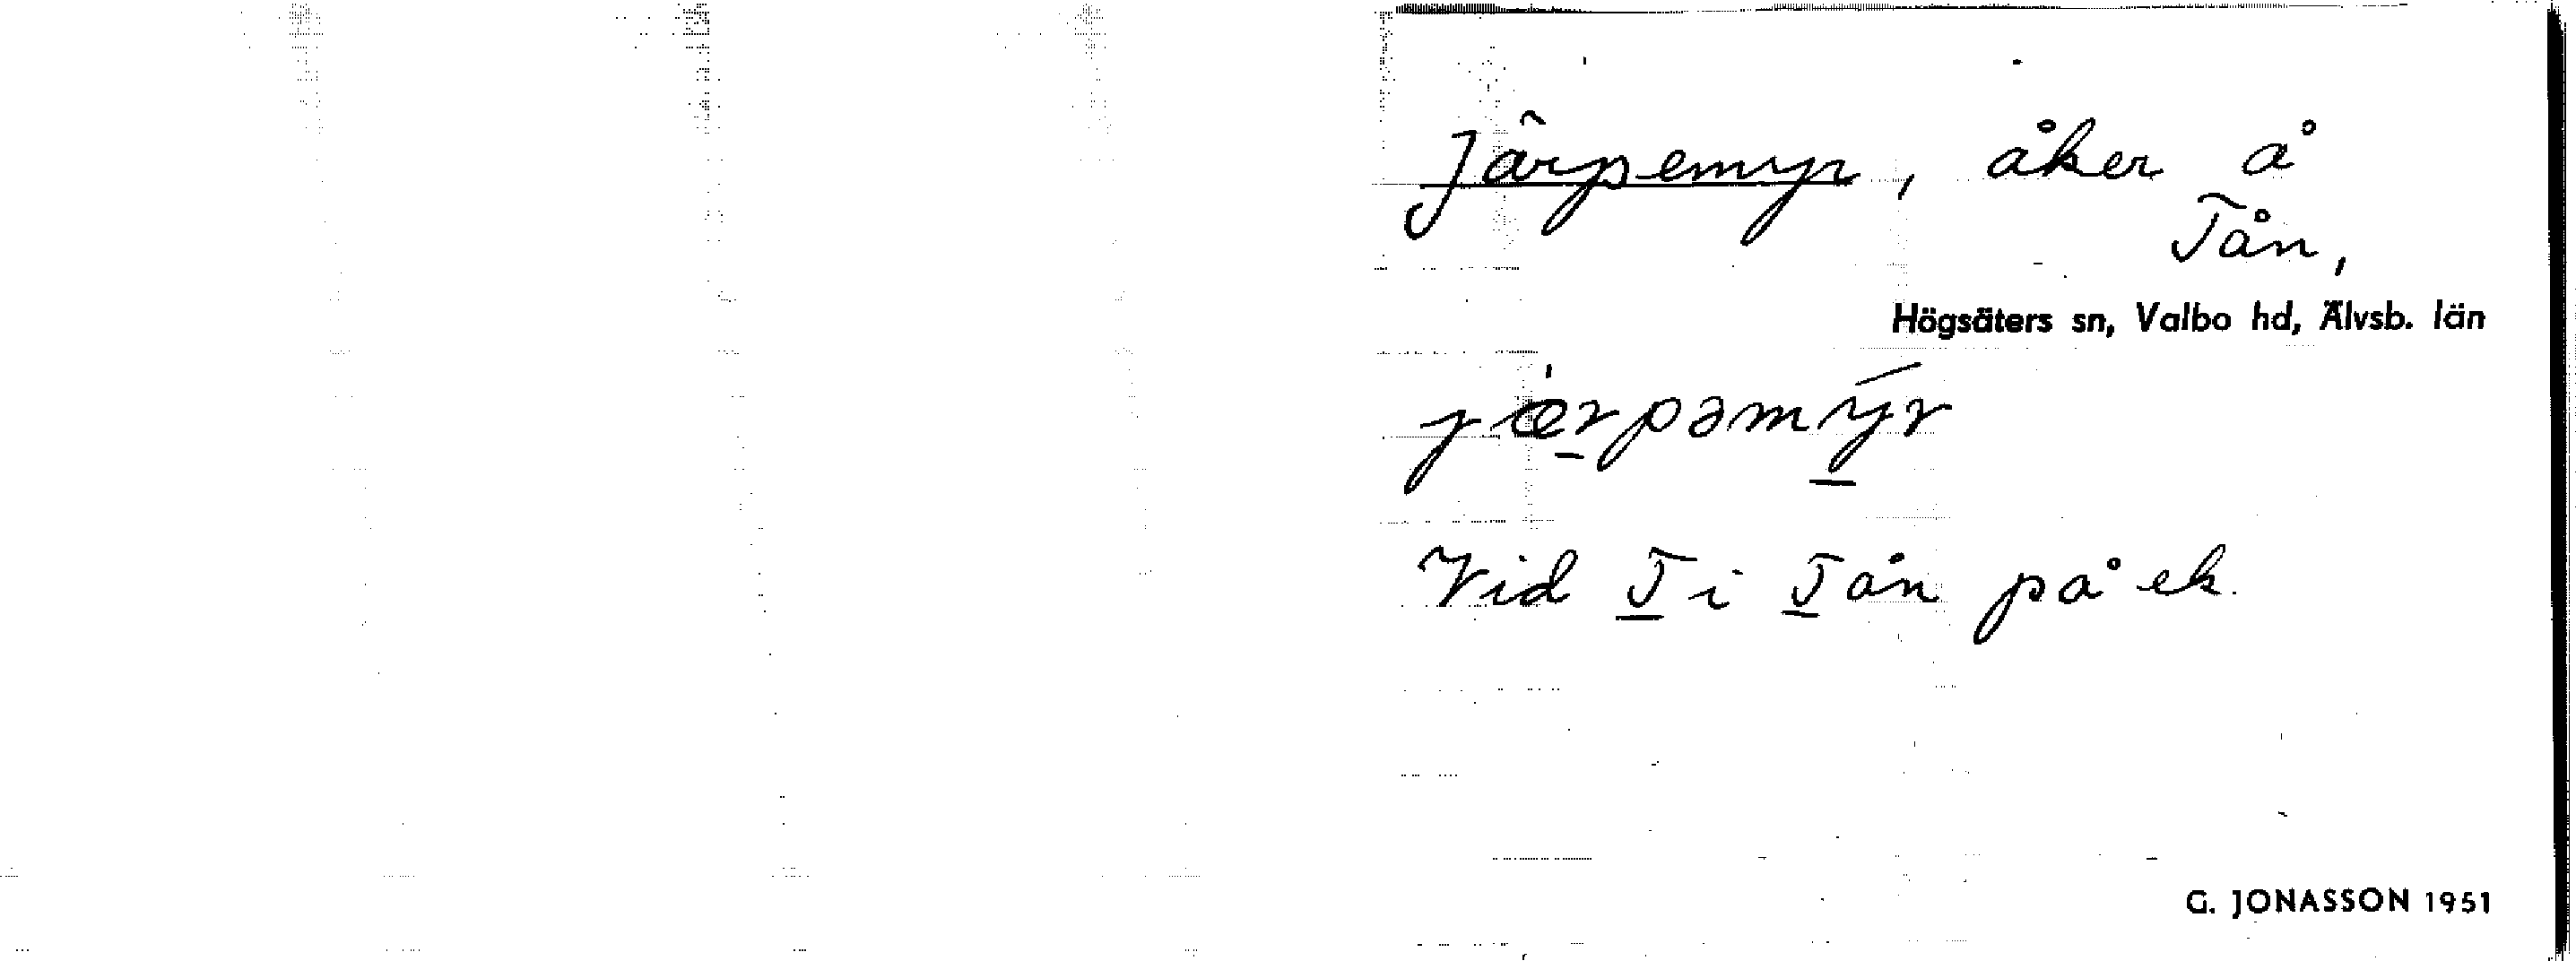 Järpemyr, åker å
Tån,
Högsäters sn, Valbo hd, Älvsb. län
jæ̀rpəmýr
Vid T i Tån på ek.
G. JONASSON 1951